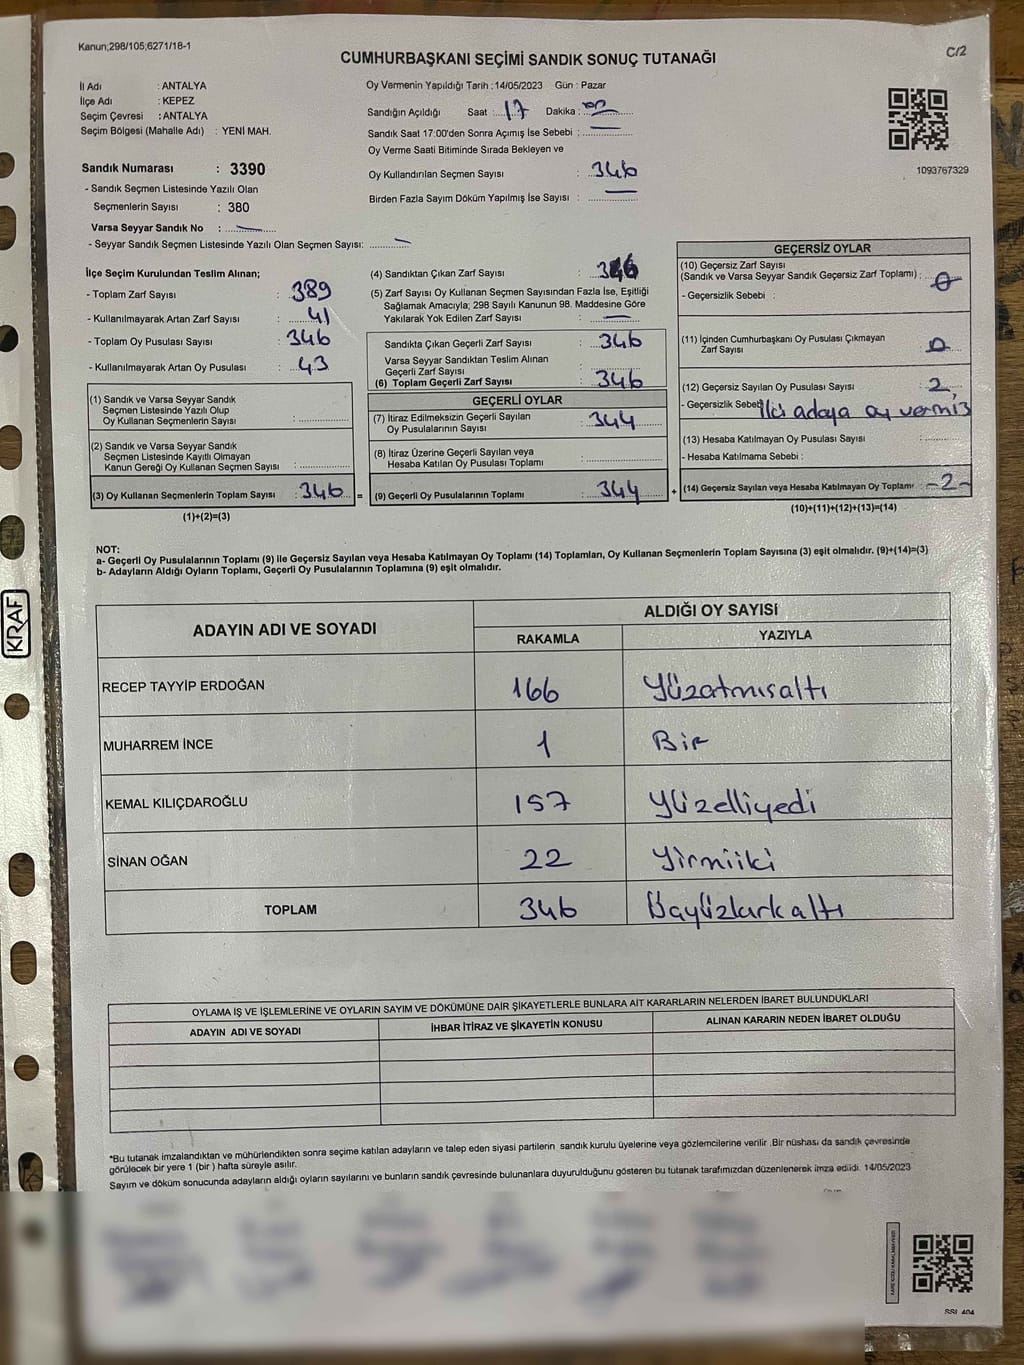 Kanun;298/105;6271/18-1
C/2
CUMHURBAŞKANI SEÇİMİ SANDIK SONUÇ TUTANAĞI
İl Adı : ANTALYA
İlçe Adı : KEPEZ
Seçim Çevresi : ANTALYA
Seçim Bölgesi (Mahalle Adı) : YENİ MAH.
Sandık Numarası : 3390
- Sandık Seçmen Listesinde Yazılı Olan
Seçmenlerin Sayısı : 380
Varsa Seyyar Sandık No : —
- Seyyar Sandık Seçmen Listesinde Yazılı Olan Seçmen Sayısı: —
Oy Vermenin Yapıldığı Tarih : 14/05/2023 Gün : Pazar
Sandığın Açıldığı Saat : 17 Dakika :
Sandık Saat 17:00'den Sonra Açımış İse Sebebi : —
Oy Verme Saati Bitiminde Sırada Bekleyen ve
Oy Kullandırılan Seçmen Sayısı : 346
Birden Fazla Sayım Döküm Yapılmış İse Sayısı : —
1093767329
İlçe Seçim Kurulundan Teslim Alınan;
- Toplam Zarf Sayısı : 389
- Kullanılmayarak Artan Zarf Sayısı : 41
- Toplam Oy Pusulası Sayısı : 346
- Kullanılmayarak Artan Oy Pusulası : 43
(1) Sandık ve Varsa Seyyar Sandık
Seçmen Listesinde Yazılı Olup
Oy Kullanan Seçmenlerin Sayısı :
(2) Sandık ve Varsa Seyyar Sandık
Seçmen Listesinde Kayıtlı Olmayan
Kanun Gereği Oy Kullanan Seçmen Sayısı :
(3) Oy Kullanan Seçmenlerin Toplam Sayısı : 346 =
(1)+(2)=(3)
(4) Sandıktan Çıkan Zarf Sayısı : 346
(5) Zarf Sayısı Oy Kullanan Seçmen Sayısından Fazla İse, Eşitliği
Sağlamak Amacıyla; 298 Sayılı Kanunun 98. Maddesine Göre
Yakılarak Yok Edilen Zarf Sayısı : —
Sandıkta Çıkan Geçerli Zarf Sayısı : 346
Varsa Seyyar Sandıktan Teslim Alınan
Geçerli Zarf Sayısı :
(6) Toplam Geçerli Zarf Sayısı : 346
GEÇERLİ OYLAR
(7) İtiraz Edilmeksizin Geçerli Sayılan
Oy Pusulalarının Sayısı : 344
(8) İtiraz Üzerine Geçerli Sayılan veya
Hesaba Katılan Oy Pusulası Toplamı :
(9) Geçerli Oy Pusulalarının Toplamı : 344 +
GEÇERSİZ OYLAR
(10) Geçersiz Zarf Sayısı
(Sandık ve Varsa Seyyar Sandık Geçersiz Zarf Toplamı) : 0
- Geçersizlik Sebebi :
(11) İçinden Cumhurbaşkanı Oy Pusulası Çıkmayan
Zarf Sayısı : 0
(12) Geçersiz Sayılan Oy Pusulası Sayısı : 2
- Geçersizlik Sebebi İki adaya oy vermiş
(13) Hesaba Katılmayan Oy Pusulası Sayısı :
- Hesaba Katılmama Sebebi :
(14) Geçersiz Sayılan veya Hesaba Katılmayan Oy Toplamı : -2-
(10)+(11)+(12)+(13)=(14)
NOT:
a- Geçerli Oy Pusulalarının Toplamı (9) ile Geçersiz Sayılan veya Hesaba Katılmayan Oy Toplamı (14) Toplamları, Oy Kullanan Seçmenlerin Toplam Sayısına (3) eşit olmalıdır. (9)+(14)=(3)
b- Adayların Aldığı Oyların Toplamı, Geçerli Oy Pusulalarının Toplamına (9) eşit olmalıdır.
ADAYIN ADI VE SOYADI
ALDIĞI OY SAYISI
RAKAMLA YAZIYLA
RECEP TAYYİP ERDOĞAN 166 Yüzatmısaltı
MUHARREM İNCE 1 Bir
KEMAL KILIÇDAROĞLU 157 Yüzelliyedi
SİNAN OĞAN 22 Yirmiiki
TOPLAM 346
OYLAMA İŞ VE İŞLEMLERİNE VE OYLARIN SAYIM VE DÖKÜMÜNE DAİR ŞİKAYETLERLE BUNLARA AİT KARARLARIN NELERDEN İBARET BULUNDUKLARI
ADAYIN ADI VE SOYADI İHBAR İTİRAZ VE ŞİKAYETİN KONUSU ALINAN KARARIN NEDEN İBARET OLDUĞU
*Bu tutanak imzalandıktan ve mühürlendikten sonra seçime katılan adayların ve talep eden siyasi partilerin sandık kurulu üyelerine veya gözlemcilerine verilir .Bir nüshası da sandık çevresinde
görülecek bir yere 1 (bir ) hafta süreyle asılır.
Sayım ve döküm sonucunda adayların aldığı oyların sayılarını ve bunların sandık çevresinde bulunanlara duyurulduğunu gösteren bu tutanak tarafımızdan düzenlenerek imza edildi. 14/05/2023
KRAF